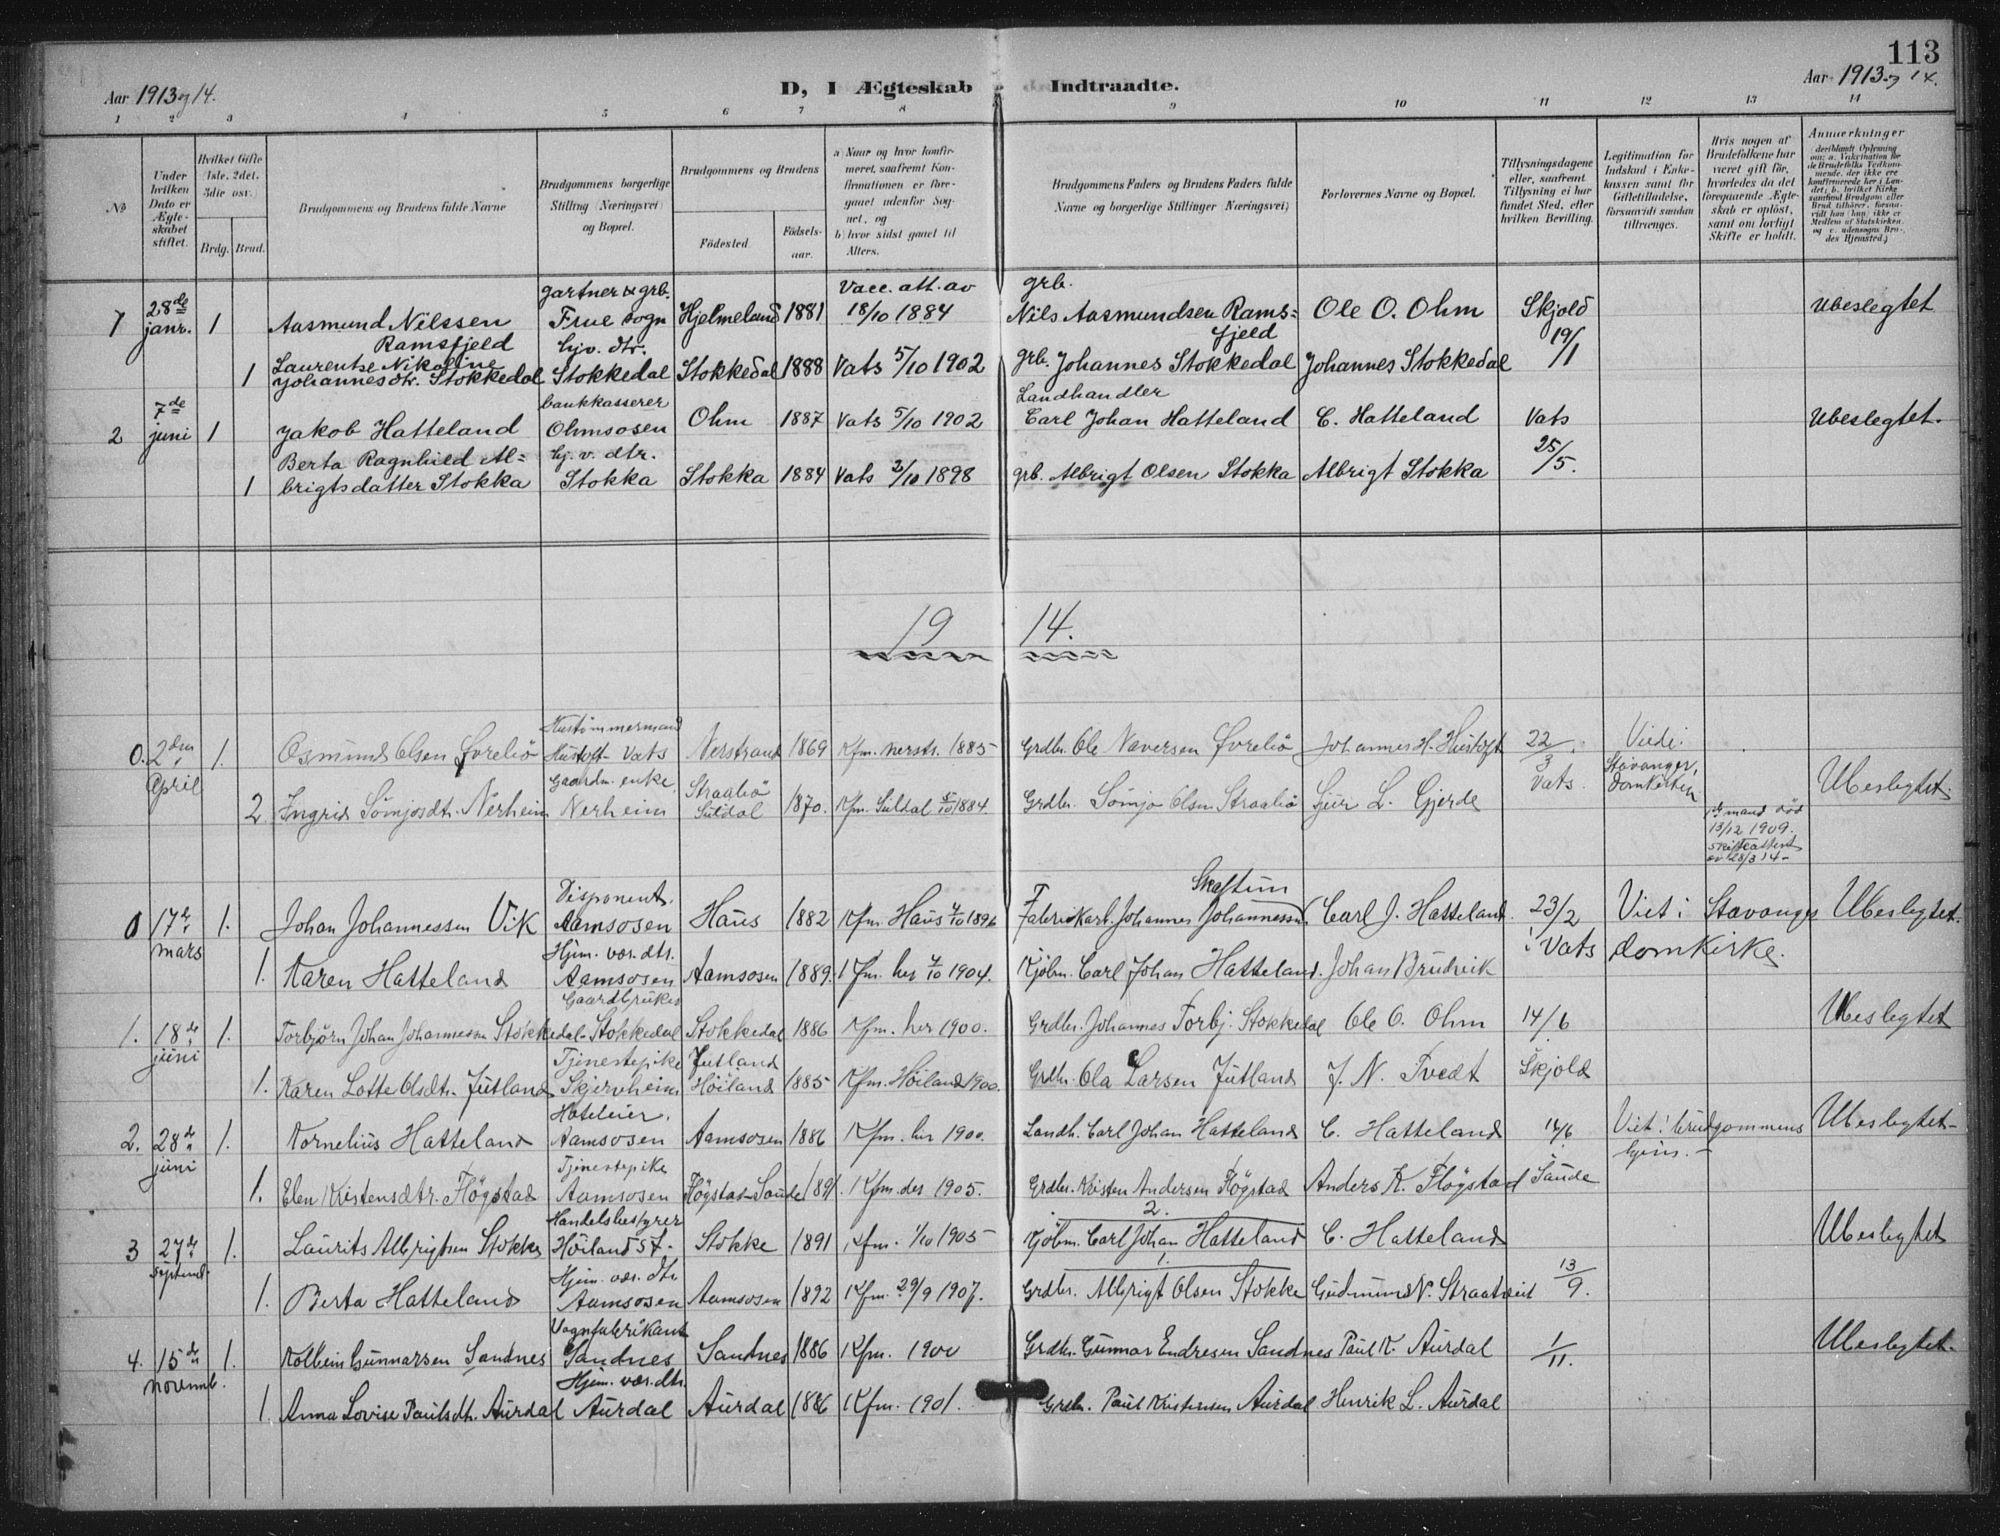 113
Aar 1913 og 14.
D, I Ægteskab Indtraadte.
Aar 1913 og 14.
1 2 3 4 5 6 7 8 9 10 11 12 13 14
No
Under hvilken Dato er Ægteskabet stiftet.
Hvilket Gifte (1ste. 2det. 3die osv.)
Brdg. Brud.
Brudgommens og Brudens fulde Navne
Brudgommens borgerlige Stilling (Næringsvei) og Bopæl.
Brudgommens og Brudens
Fødested. Fødselsaar.
a) Naar og hvor konfirmeret, saafremt Konfirmationen er foregaaet udenfor Sognet, og
b) hvor sidst gaaet til Alters.
Brudgommens Faders og Brudens Faders fulde Navne og borgerlige Stillinger (Næringsvei)
Forlovernes Navne og Bopæl.
Tillysningsdagene eller, saafremt Tillysning ei har fundet Sted, efter hvilken Bevilling.
Legitimation for Indskud i Enkekassen samt for Giftetilladelse, forsaavidt saadan tiltrænges.
Hvis nogen af Brudefolkene har været gift før, hvorledes da det foregaaende Ægteskab er opløst, samt om lovligt Skifte er holdt.
Anmerkninger
gartner & grb. Vacc. att. av grb.
1 28de janr. 1 Aasmund Nilssen Ramsfjeld Frue sogn Hjelmeland 1881 18/10 1884 Nils Aasmundsen Ramsfjeld Ole O. Ohm Skjold 19/1 Ubeslegtet
1 Laurentse Nikoline Johannesdtr. Stokkedal hjv. dtr. Stokkedal Stokkedal 1888 Vats 5/10 1902 grb. Johannes Stokkedal Johannes Stokkedal
2 7de juni 1 Jakob Hatteland bankkasserer Ohmsosen Ohm 1887 Vats 5/10 1902 Landhandler Carl Johan Hatteland C. Hatteland Vats 25/5. Ubeslegtet.
1 Berta Ragnhild Albrigtsdatter Stokka hj. v. dtr. Stokka Stokka 1884 Vats 2/10 1898 grb. Albrigt Olsen Stokka Albrigt Stokka
19 14.
0. 2den April 1. Osmund Olsen Øvreliø Hustømmermand Hustoft Vats Nerstrand 1869 Kfm. nerstr. 1885 Grdbr. Ole Naversen Øvreliø Johannes H. Hustoft 22/3 Vats Viede i Stavanger, domkirken Ubeslegtet.
2 Ingrid Sömjosdtr. Nerheim Gaardm. enke, Nerheim Straabiø Suldal 1870. Kfm. Suldal 5/10 1884. Grdbr. Sömjo Olsen Straabiø Sjur L. Gjerde 1st mand död 13/12 1909. Skifteattest av 28/3 14-
0 17de mars 1. Johan Johannessen Vik Disponent. Aamsosen Haus 1882 Kfm. Haus 4/10 1896 Fabrikkarb. Johannes Johannessen Skaftun Carl J. Hatteland 23/2 i Vats Viet i Stavanger domkirke. Ubeslegtet.
1. Karen Hatteland Hjem. vær. dtr. Aamsosen Aamsosen 1889. Kfm. her 2/10 1904. Kjöbm. Carl Johan Hatteland. Johan Brudvik
1. 18de juni 1. Torbjörn Johan Johannessen Stokkedal Gaardbruker Stokkedal Stokkedal 1886 Kfm. her 1900. Grdbr. Johannes Torbj. Stokkedal Ole O. Ohm 14/6 Skjold Ubeslegtet
1. Karen Lotte Olsdtr. Jutland Tjenestepike Skjervheim Jutland Höiland 1885 Kfm. Höiland 1900. Grdbr. Ola Larsen Jutland J. N. Tvedt
2. 28de juni 1. Kornelius Hatteland Hoteleier. Aamsosen Aamsosen 1886 Kfm. her 1900. Landh. Carl Johan Hatteland C. Hatteland 14/6 Saude Viet i brudgommens hjem. Ubeslegtet
1. Elen Kristensdtr. Flögstad Tjenestepike Aamsosen Flögstad Saude 1891. Kfm. der 1905. Grdbr. Kristen Andersen Flögstad Anders K. Flögstad
3 27de septemb. 1. Laurits Albrigtsen Stokke Handelsbestyrer Höiland st. Stokke 1891 Kfm. 1/10 1905 2. Kjöbm. Carl Johan Hatteland C. Hatteland 13/9. Ubeslegtet
1. Berta Hatteland Hjem. vær. dtr Aamsosen Aamsosen 1892 Kfm. 29/9 1907. 1. Grdbr. Albrigt Olsen Stokke Gudmund N. Straatveit
4. 15de novemb. 1. Kolbein Gunnarsen Sandnes Vognfabrikant Sandnes Sandnes 1886 Kfm. 1900 Grdbr. Gunnar Endresen Sandnes Paul K. Aurdal 1/11. Ubeslegtet.
1. Anna Lovise Paulsdtr. Aurdal Hjem. vær. dtr. Aurdal Aurdal 1886 Kfm. 1901. Grdbr. Paul Kristensen Aurdal Henrik L. Aurdal